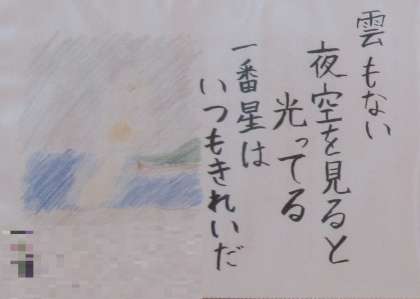 雲もない
夜空を見ると
光ってる
一番星は
いつもきれいだ